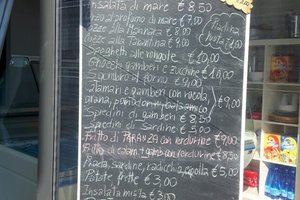 Insalata di mare € 8,50
al profumo di mare € 7,00
alla Marinara € 8,00
alla Tarantina € 9,00
Spaghetti alle vongole € 10,00
Gnocchi gamberi e zucchine € 10,00
Sgombro al forno € 9,00
Calamari e gamberi con rucola
grana, pomodorini, balsam. € 9,00
Spiedini di gamberi € 8,50
Spiedini di Sardine € 5,00
Fritto di PARANZA con verdurine € 9,00
Fritto di calam. + gamb. con verdurine € 8,50
Piada, sardine, radicchio, cipolla € 5,00
Patate fritte € 3,00
Insalata mista € 3,00
Piadina
vuota
1,00